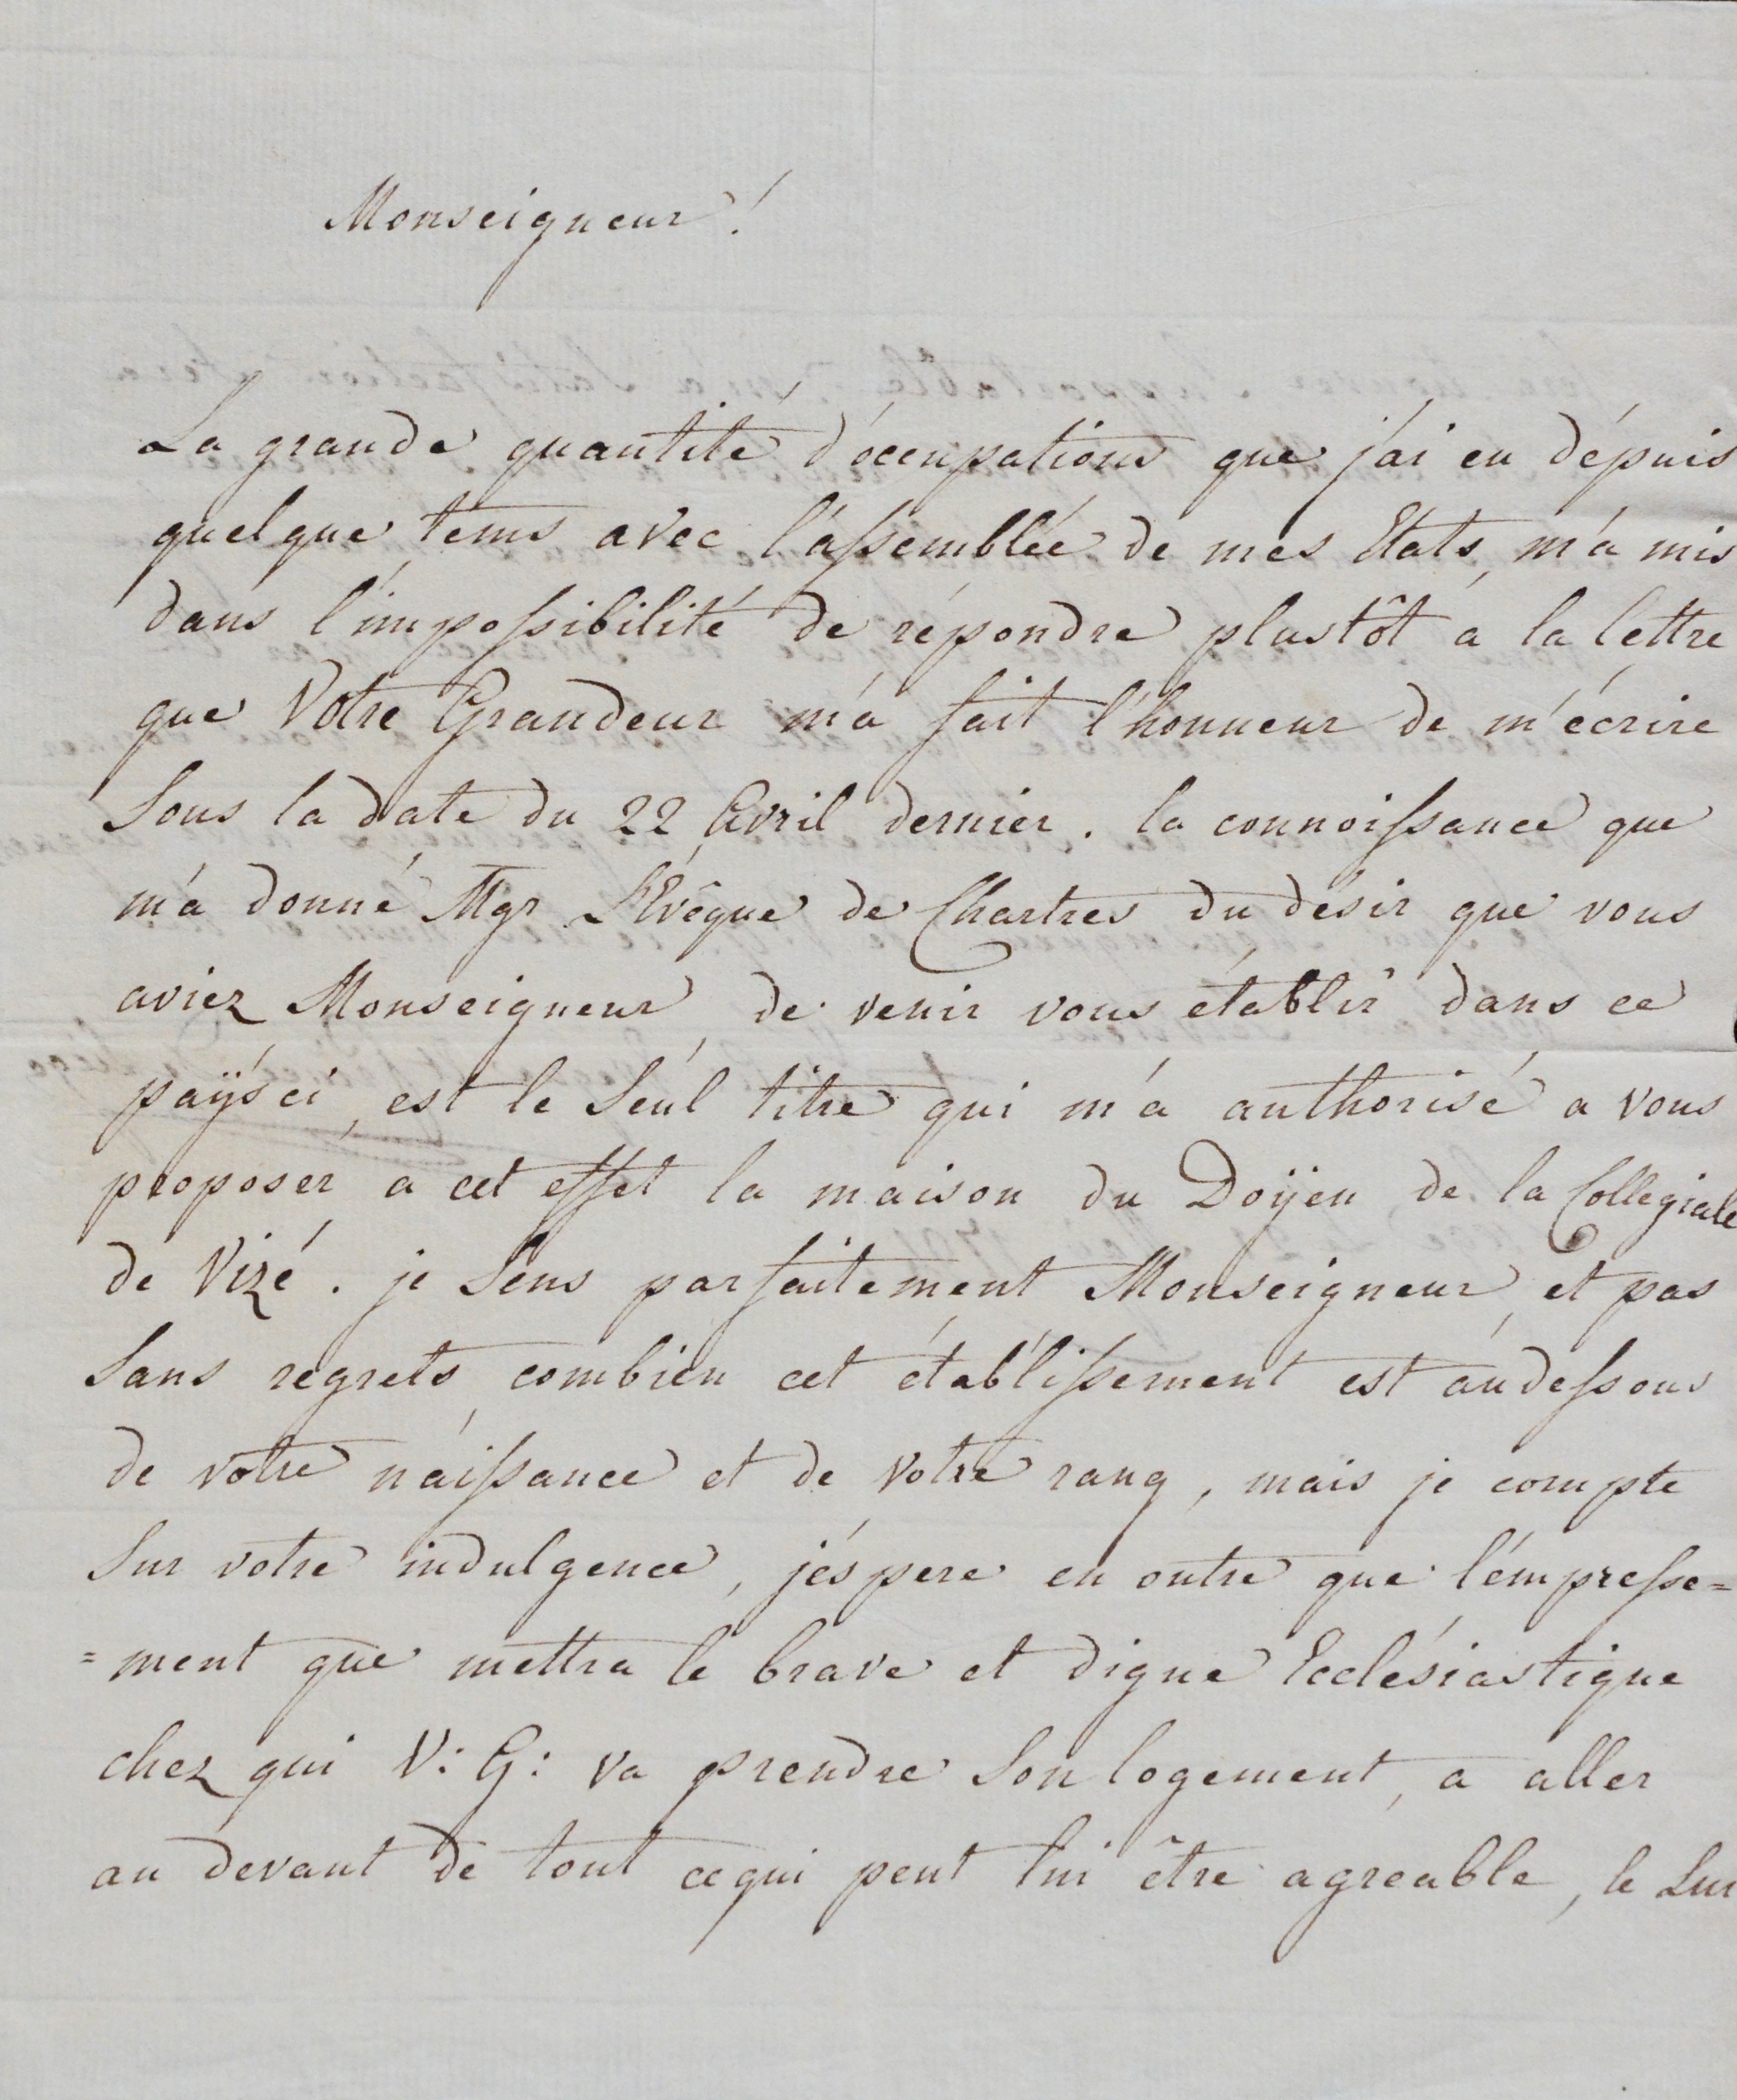 Monseigneur!
La grande quantité d'óccupations que j'ai eu dépuis
quelque tems avec l'ássemblée de mes Etats, m'a mis
dans l'impossibilité de répondre plustôt a la lettre
que Votre Grandeur m'a fait l'honneur de m'écrire
Sous la date du 22 Avril dernier. la connoissance que
m'a donné Mgr L'Evêque de Chartres du désir que vous
aviez Monseigneur, de venir vous établir dans ce
païs ci, est le Seul titre qui m'a authorisé a vous
proposer a cet effet la maison du Doÿen de la Collegiale
de Vizé. je Sens parfaitement Monseigneur, et pas
Sans regrets, combien cet établissement est áudessous
de votre náissance et de votre rang, mais je compte
Sur votre indulgence, j'éspere en outre que l'émpresse=
=ment que mettra le brave et digne Ecclésiastique
chez qui V: G: va prendre Son logement, a aller
au dévant de tout cequi peut lui être agréable, le Sur